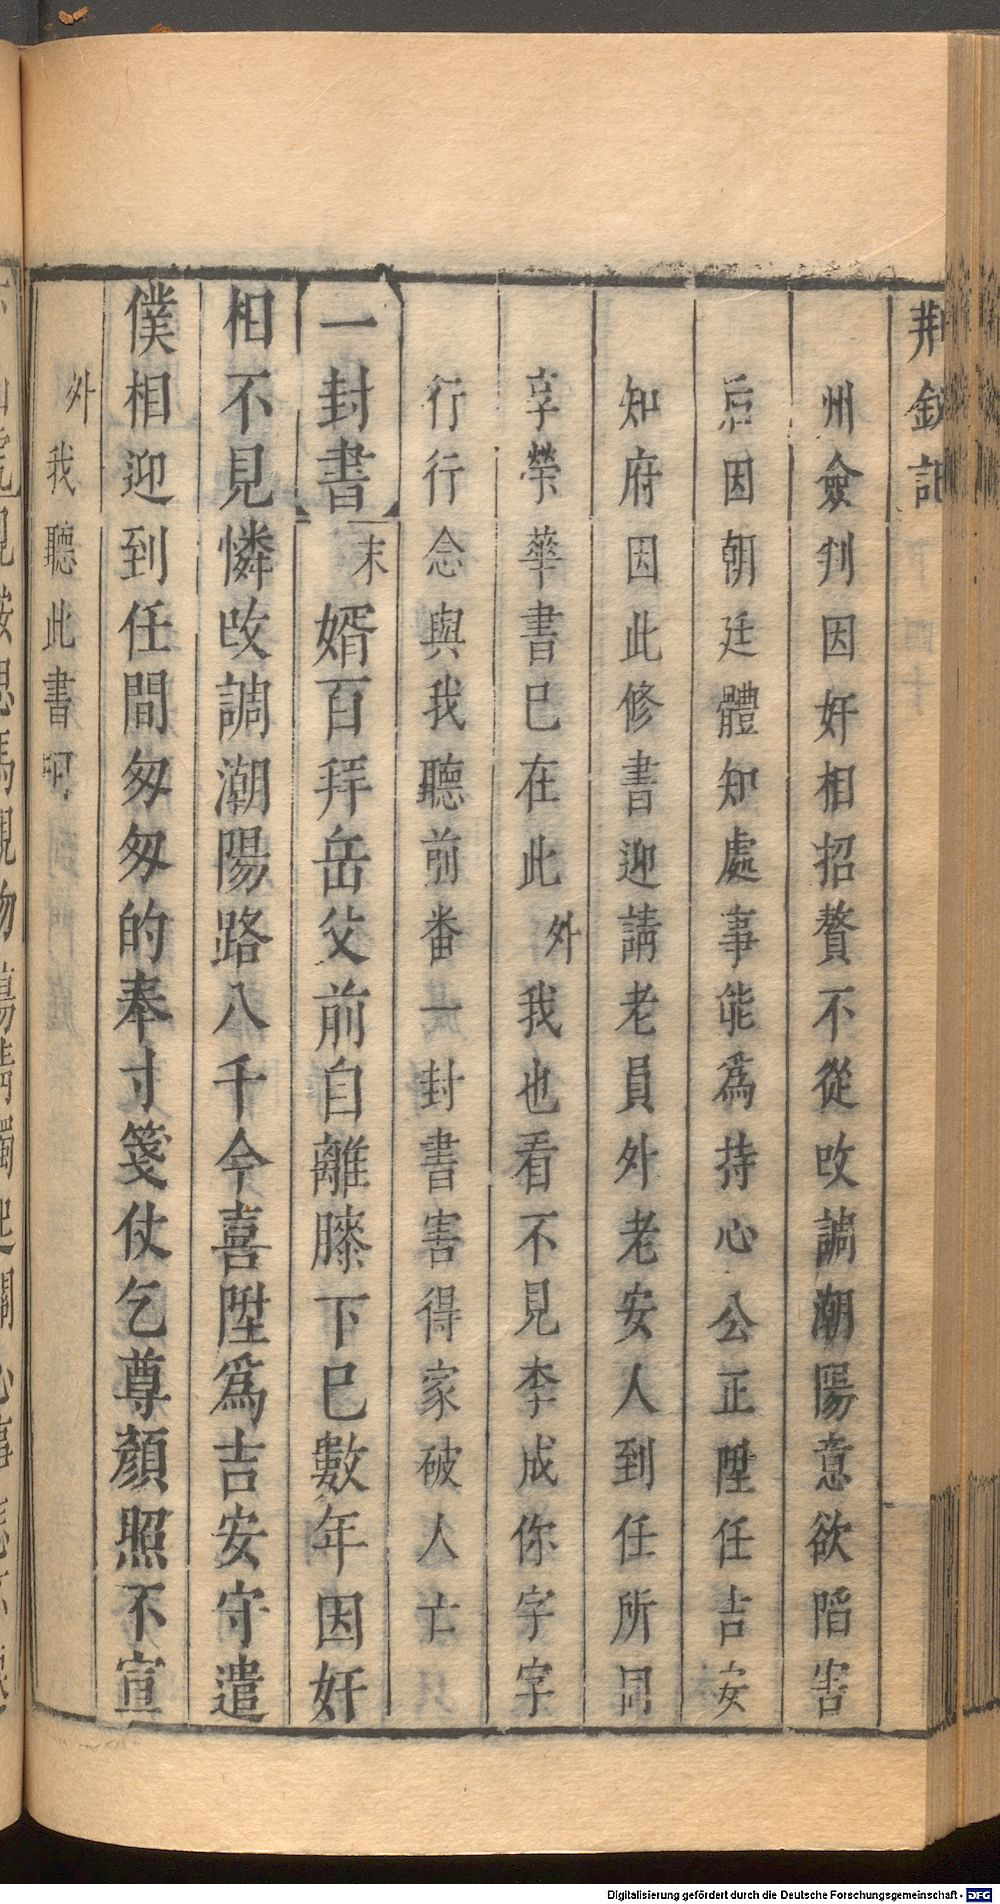 荆釵記
州僉判因奸相招贅不從攺調潮陽意欲陷害
后因朝廷體知處事能爲持心公正陞任吉安
知府因此修書迎請老員外老安人到任所同
享榮華書已在此 外 我也看不見李成你字字
行行念與我聽前番一封書害得家破人亡
一封書 末 婿百拜岳父前自離膝下已數年因奸
相不見憐攺調潮陽路八千今喜陞爲吉安守遣
僕相迎到任間匆匆的奉寸箋伏乞尊顏照不宣
外 我聽此書啊
Digitalisierung gefördert durch die Deutsche Forschungsgemeinschaft - DFG